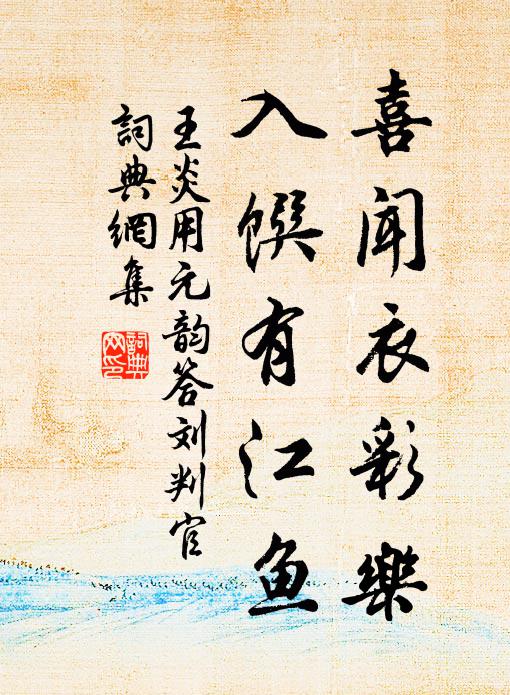 喜闻衣彩樂
入饌有江鱼
王炎用元韵答刘判官
詞典網集
詞典
网印